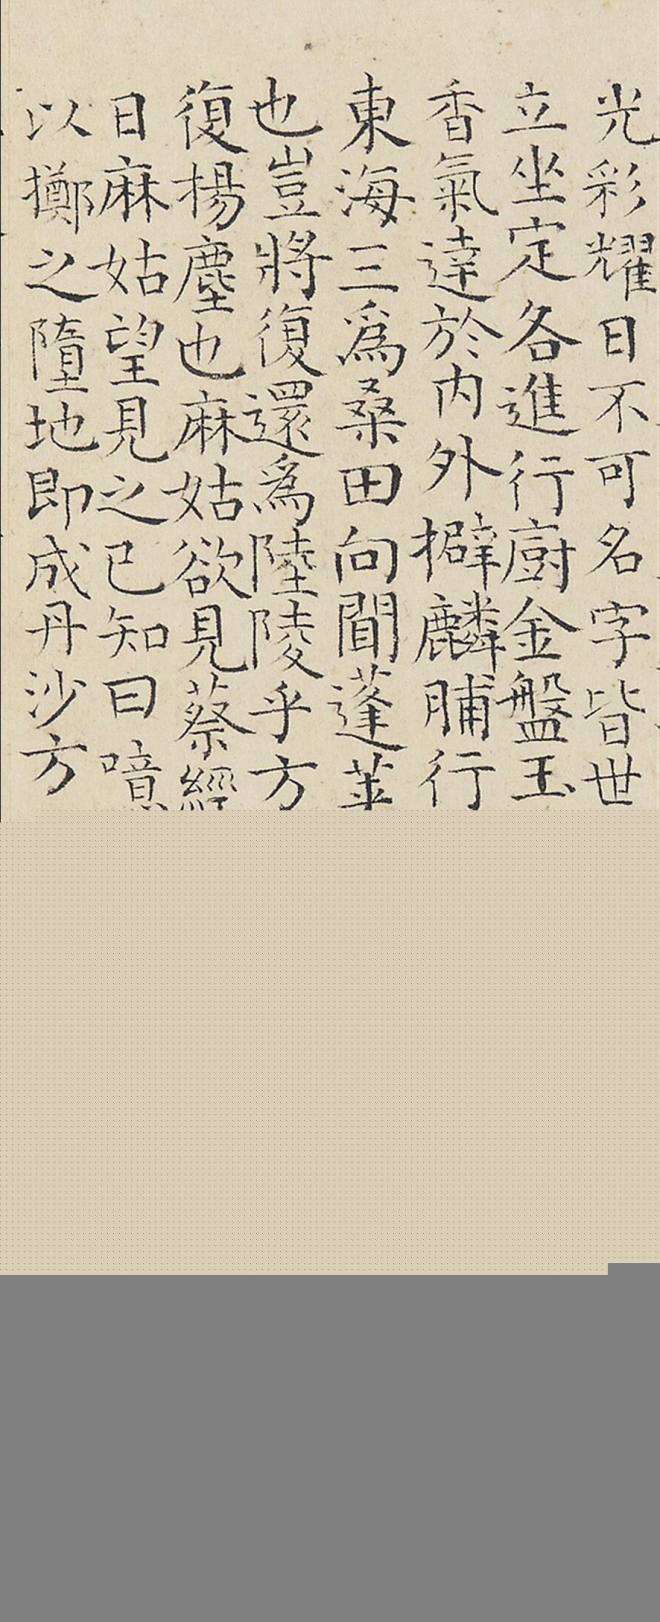 光彩耀日不可名字皆世
立坐定各進行廚金盤玉
香氣達於內外擗麟脯行
東海三爲桑田向間蓬萊
也豈將復還爲陸陵乎方
復楊塵也麻姑欲見蔡經
日麻姑望見之已知曰噫
以擲之墮地即成丹沙方